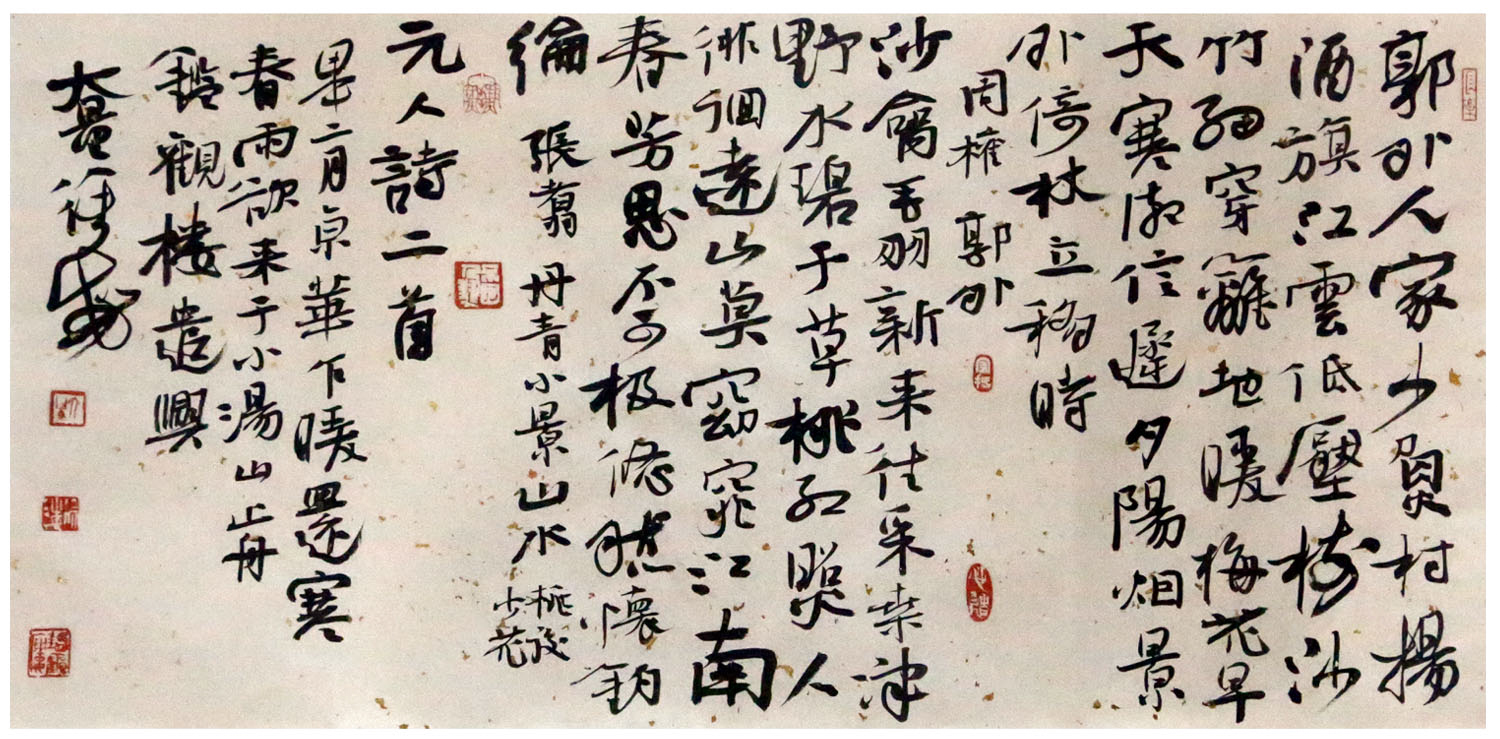 郭外人家少負村揚
酒旗江雲低壓樹沙
竹細穿籬地暖梅花早
天寒潮信遲夕陽烟景
外倚杖立移時
周權 郭外
沙禽毛羽新来往采桑津
野水碧于草桃紅照人
徘徊遠山莫窈窕江南
春芳思不可极悠然懷釣
綸
張翥 丹青小景山水
桃後
少花
元人詩二首
二月京華乍暖還寒
春雨欲来于小湯山止舟
觀楼遣興